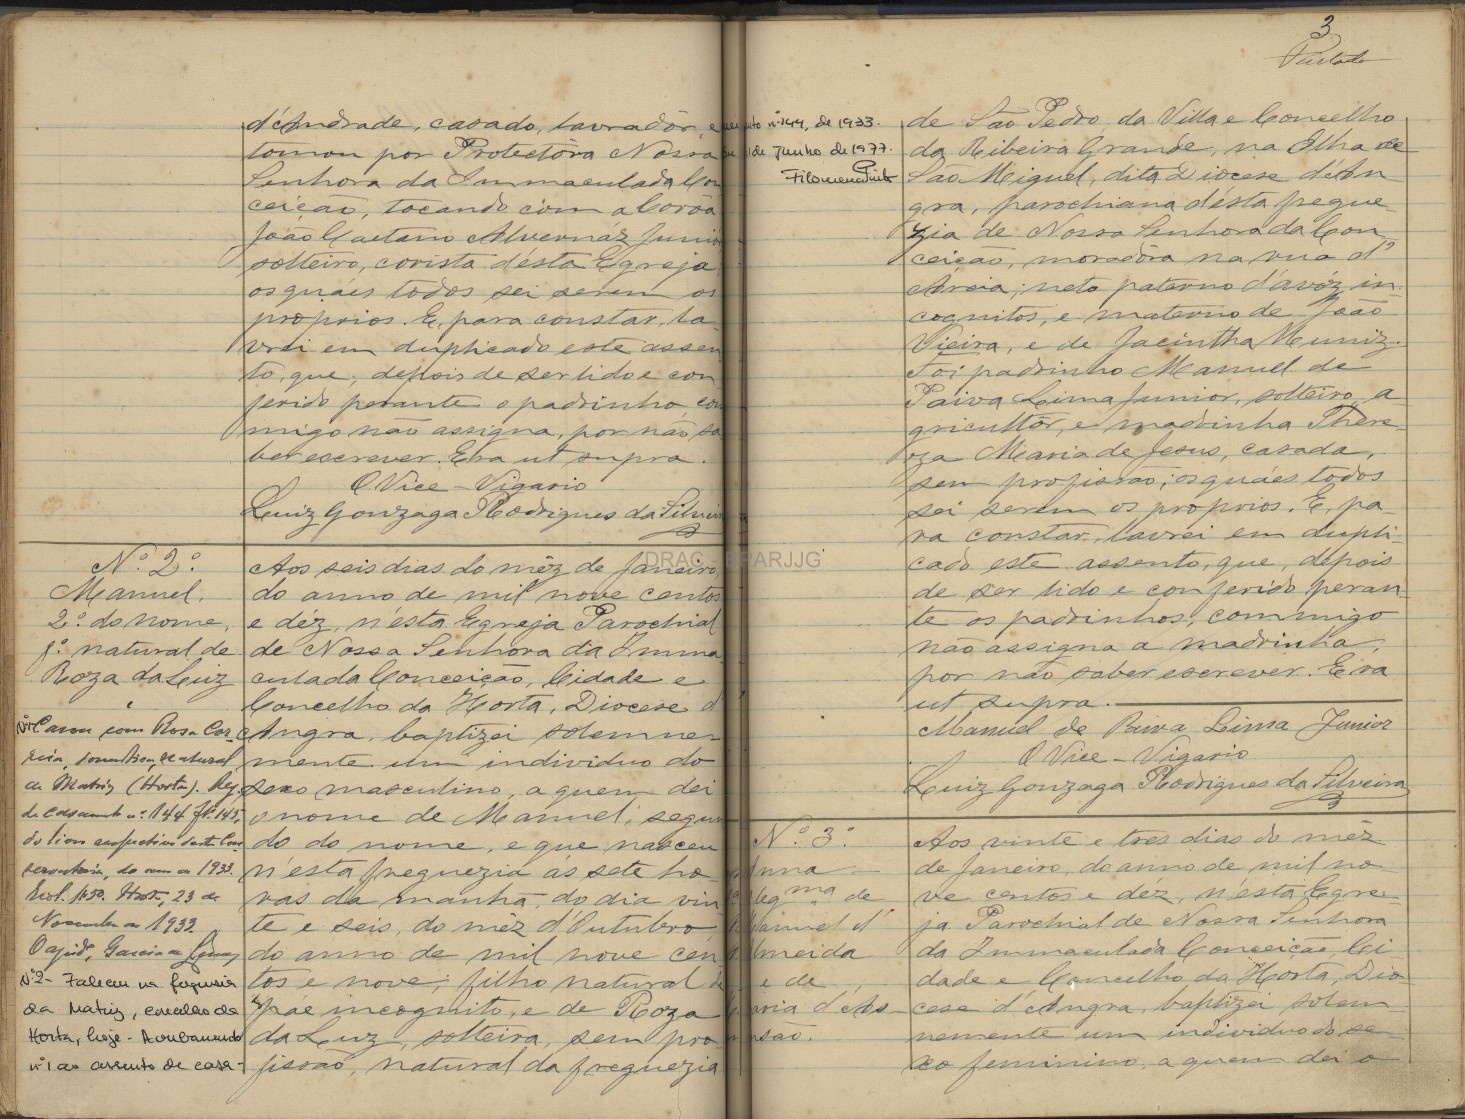 d'Andrade, casado, lavradôr, e
tomou por Protectôra Nossa
Senhora da Immaculada Con
ceição, tocando com a Corôa
João Caetano Alvernáz Junior
solteiro, corista d'ésta Egreja
os quáes todos sei serem os
proprios. E, para constar, la-
vrei em duplicado este assen
to, que, depois de ser lido e con
ferido perante o padrinho, com
migo não assigna, por não sa
ber escrever. Era ut supra.
O Vice-Vigario
Luiz Gonzaga Rodrigues da Silveira
Nº 2º
Manuel,
2º do nome,
fº natural de
Roza da Luiz
Nº1 Casou com Rosa Cor-
reia, domestica, natural
da Matriz (Horta). Reg.
de casamento nº 144 fls. 145,
do livro respectivo desta Con
servatória, do ano de 1933.
Horta, 23 de
Novembro de 1933.
O Garcia
Nº2- Faleceu na freguesia
da Matriz, concelho da
Horta, hoje - Averbamento
nº1 ao assento de casa-
Aos seis dias do mêz de Janeiro,
do anno de mil nove centos
e déz, n'ésta Egreja Parochial
de Nossa Senhora da Imma
culada Conceição, Cidade e
Concelho da Horta, Diocese d'
Angra, baptizei solemne-
mente um individuo do
sexo masculino, a quem dei
o nome de Manuel, segun
do do nome, e que nasceu
n'ésta freguezia ás sete ho
ras da manhã, do dia vin
te e seis, do mêz d'Outubro,
do anno de mil nove cen
tos e nove; filho natural de
páe incognito, e de Roza
da Luz, solteira, sem pro
fissão, natural da freguezia
3
Furtado
mento nº 144, de 1933.
1 de Junho de 1977.
Filomena
de São Pedro da Villa e Concelho
da Ribeira Grande, na Ilha de
São Miguel, dita Diocese d'An
gra, parochiana d'ésta fregue-
zia de Nossa Senhora da Con
ceição, moradôra na rua d'
Areia; neto paterno d'avóz in-
cognitos, e materno de João
Vieira, e de Jacintha Muniz.
Foi padrinho Manuel de
Paiva Lima Junior, solteiro, a-
gricultôr, e madrinha There-
za Maria de Jesus, casada,
sem profissão; os quáes todos
sei serem os proprios. E, pa-
ra constar, lavrei em dupli-
cado este assento, que, depois
de ser lido e conferido peran-
te os padrinhos, commigo
não assigna a madrinha,
por não saber escrever. Era
ut supra.
Manuel de Paiva Lima Junior
O Vice-Vigario
Luiz Gonzaga Rodrigues da Silveira
Nº 3º
Anna
legma de
Manuel d'
Almeida
e de
Maria d'As-
nsão.
Aos vinte e tres dias do mêz
de Janeiro, do anno de mil no-
ve centos e déz, n'ésta Egre-
ja Parochial de Nossa Senhora
da Immaculada Conceição, Ci
dade e Concelho da Horta, Dio-
cese d'Angra, baptizei solem
nemente um individuo do se-
xo feminino, a quem dei o
DRAC BPARJJG